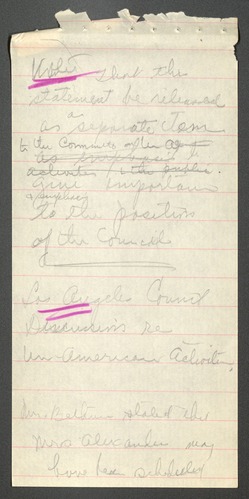 that the
statement be released
as a separate item
to the Committee
activities
give importan
& emphasis
to the position
of the Council
Los Angeles Council
Discussion re
Un-American Activities
stated that
Mrs Alexander may
have been scheduled